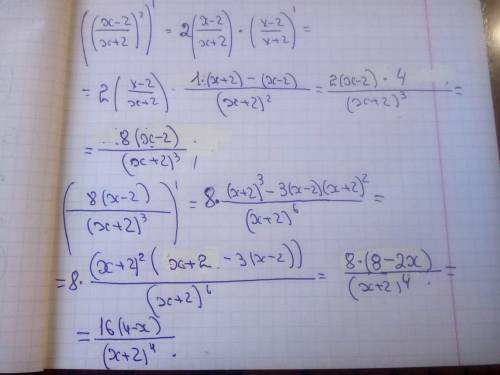 ((x-2)/(x+2))²)' = 2((x-2)/(x+2)) · ((x-2)/(x+2))' =
= 2((x-2)/(x+2)) · (1·(x+2) - (x-2))/(x+2)² = (2(x-2) · 4)/(x+2)³ =
= 8(x-2)/(x+2)³ ;
(8(x-2)/(x+2)³)' = 8 · ((x+2)³ - 3(x-2)(x+2)²)/(x+2)⁶ =
= 8 · ((x+2)²(x+2 - 3(x-2)))/(x+2)⁶ = 8·(8-2x)/(x+2)⁴ . =
= 16(4-x)/(x+2)⁴ .